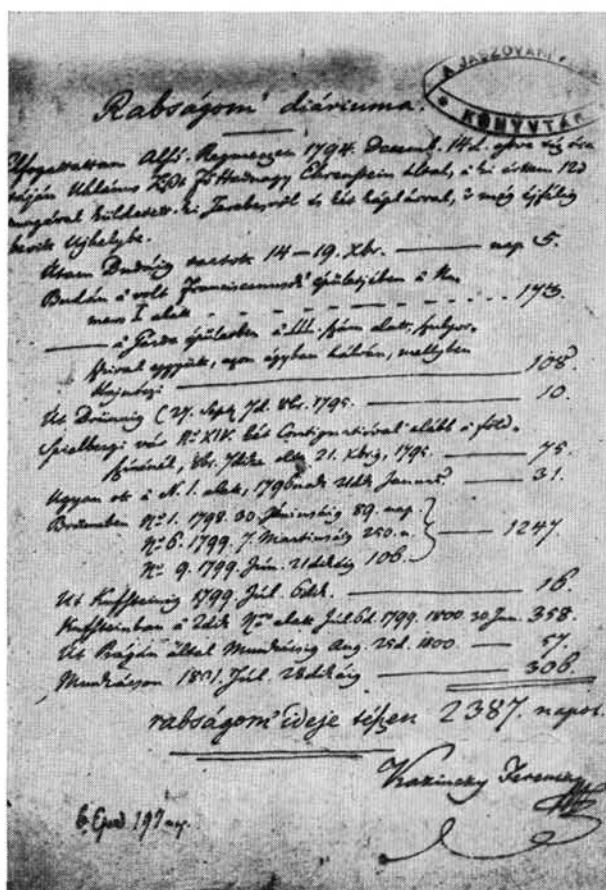 A JÁSZÓVÁRI
KÖNYVTÁR
Rabságom' diáriuma.
Elfogattattam Alsó-Regmeczen 1794. Decemb. 14d. estve
Fő Hadnagy Ehrenstein által, a ki értem 12d
magával küldetett-ki Terebesről és két káplárral, 's még éjfélig
bevitt Ujhelybe.
Utam Budáig tartott 14–19. Xbr. — nap 5.
Budán a' volt Franciscanusok' épületjében a' Nu-
mero I alatt - - - - - - 173.
— a' Garda épületben a' III. szám alatt, Szulyov-
szkival együtt, azon ágyban hálván, mellyben
Hajnóczi — 108
Út Brünnig (27. Sept. 7d. 8br. 1795. — 10.
Spielbergi vár N° XIV. két Contignatióval alább a' föld-
színénél, 8br. 7dike olta 21. Xbrig, 1795 — 75.
Ugyan ott a' N. 1. alatt, 1796nak Januar. — 31.
Brünnben N° 1. 1798. 30. Júniusáig 89. nap.
N° 6. 1799. 7. Martiusáig 250. n. — 1247
N° 9. 1799. Jún. 21dikéig 106.
Út Kuffsteinig 1799. Júl. 6dik. — 16.
Kuffsteinban a' 2dik N° alatt Júl. 6d. 1799. 1800. 30 Jun. 358.
Út Prágán által Munkácsig Aug. 25d. 1800 — 57.
Munkácson 1801. Júl. 28dikáig — 306.
rabságom' ideje tészen 2387. napot.
Kazinczy Ferencz
6. Eszt. 197 nap.